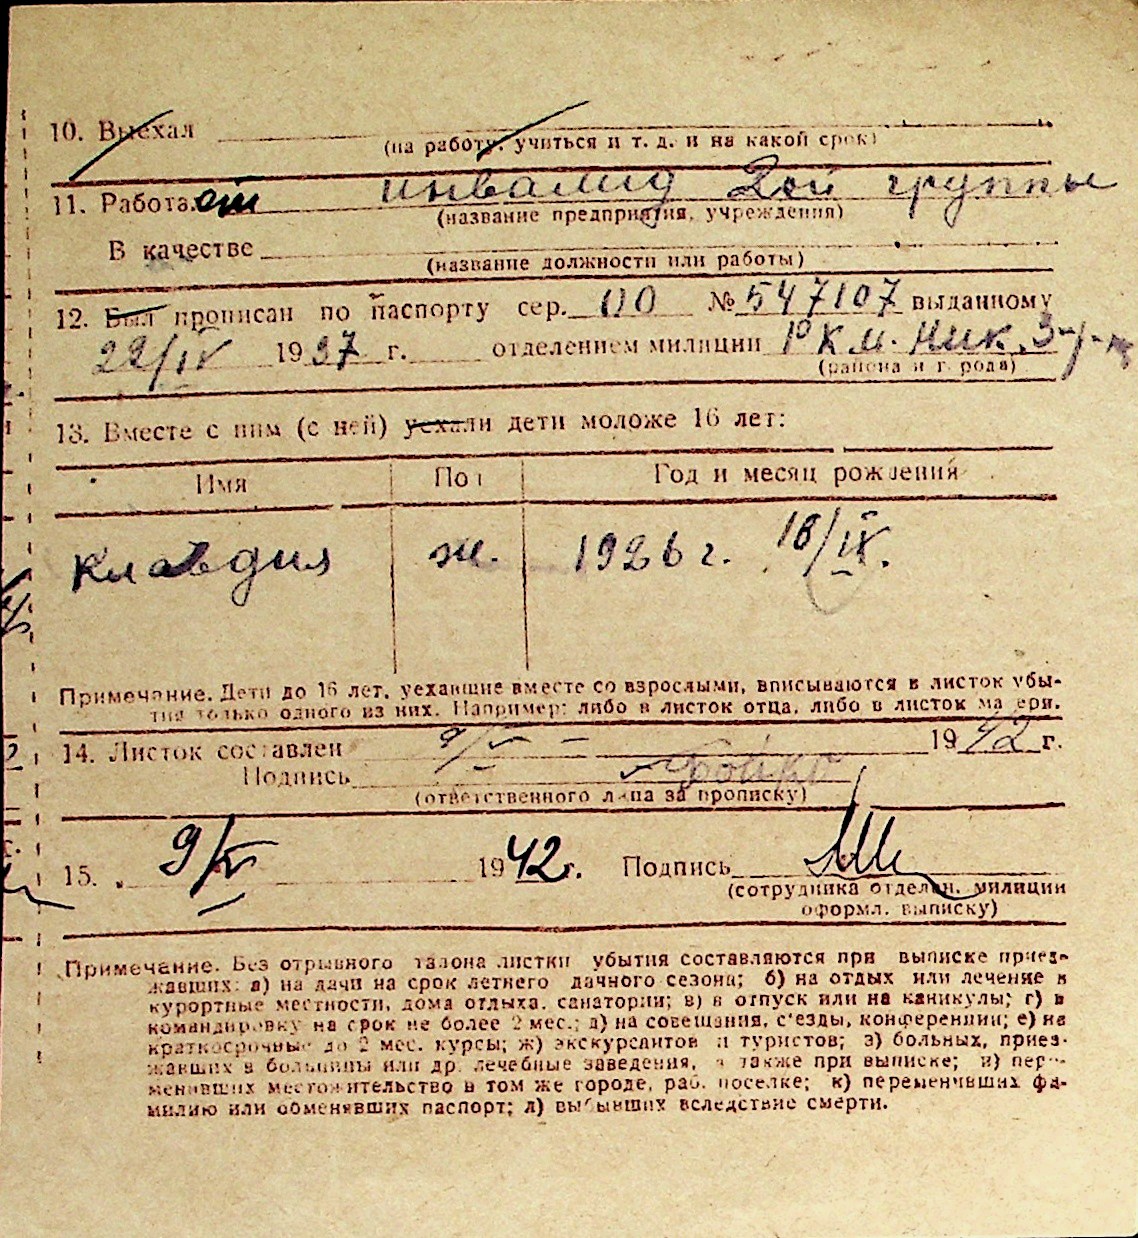 10. Выехал
(на работу, учиться и т. д. и на какой срок)
11. Работает инвалид 2ой группы
(название предприятия, учреждения)
В качестве
(название должности или работы)
12. Был прописан по паспорту сер. № 547107 выданному
22/IV 1937 г. отделением милиции РКМ. Ник.
(района и города)
13. Вместе с ним (с ней) уехали дети моложе 16 лет:
Имя Пол Год и месяц рождения
Клавдия ж. 1926 г. 18/IX.
Примечание. Дети до 16 лет, уехавшие вместе со взрослыми, вписываются в листок убы-
тия только одного из них. Например: либо в листок отца, либо в листок матери.
14. Листок составлен 9/V — 1942 г.
Подпись
(ответственного лица за прописку)
15. 9/V 1942 г. Подпись
(сотрудника отделен. милиции
оформл. выписку)
Примечание. Без отрывного талона листки убытия составляются при выписке приез-
жавших: а) на дачи на срок летнего дачного сезона; б) на отдых или лечение в
курортные местности, дома отдыха, санатории; в) в отпуск или на каникулы; г) в
командировку на срок не более 2 мес.; д) на совещания, с'езды, конференции; е) на
краткосрочные до 2 мес. курсы; ж) экскурсантов и туристов; з) больных, приез-
жавших в больницы или др. лечебные заведения, а также при выписке; и) пере-
менивших местожительство в том же городе, раб. поселке; к) переменивших фа-
милию или обменявших паспорт; л) выбывших вследствие смерти.